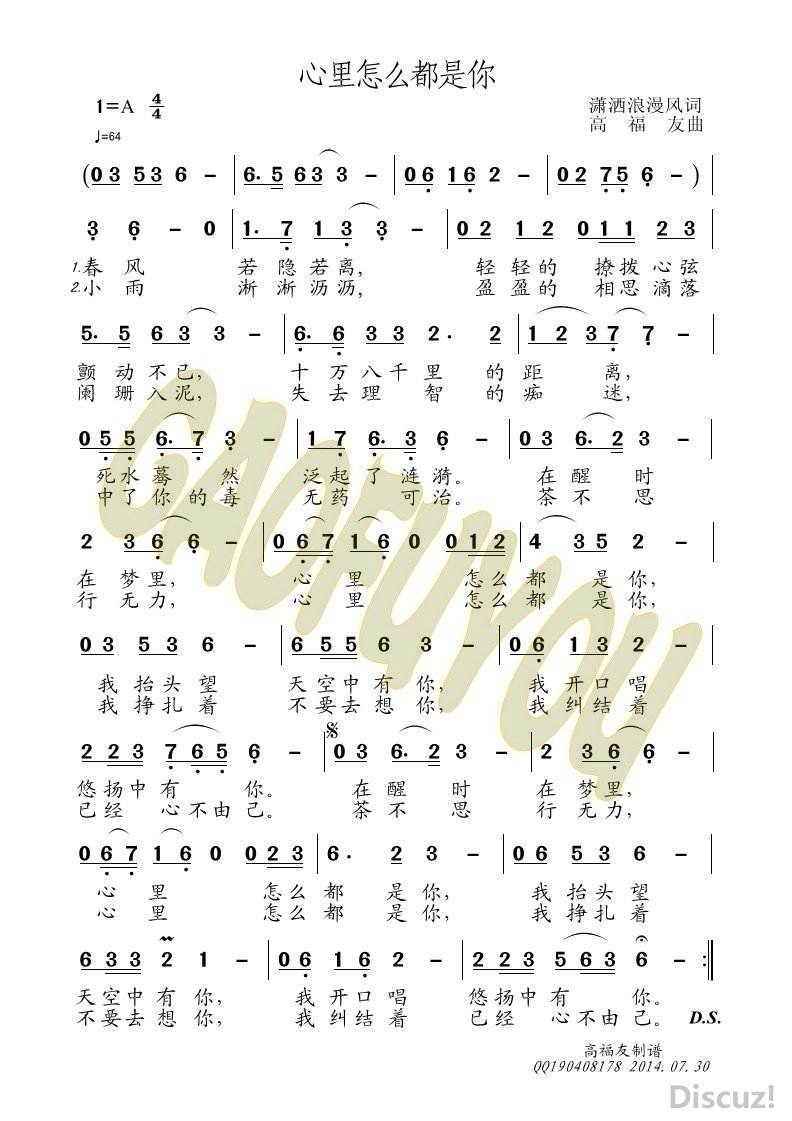 心里怎么都是你
1=A 4/4
潇洒浪漫风词
♩=64
高福友曲
(03 53 6 - | 6. 5 63 3 - | 06 16 2 - | 02 75 6 - )|
3 6 - 0 | 1. 7 1 3 3 - | 02 12 011 23
1.春风 若隐若离, 轻轻的 撩拨心弦
2.小雨 淅淅沥沥, 盈盈的 相思滴落
5. 5 63 3 - | 6. 6 33 2. 2 | 12 37 7 - |
颤动不已, 十万八千里 的距离,
阑珊入泥, 失去理智 的痴迷,
055 6. 7 3 - | 17 6. 3 6 - | 03 6. 2 3 - |
死水蓦然 泛起了涟漪。 在醒时
中了你的毒 无药可治。 茶不思
2 36 6 - | 067 16 0 012 | 4 35 2 - |
在梦里, 心里 怎么都是你,
行无力, 心里 怎么都是你,
03 53 6 - | 655 6 3 - | 06 13 2 - |
我抬头望 天空中有你, 我开口唱
我挣扎着 不要去想你, 我纠结着
223 765 6 - | 03 6. 23 - | 2 36 6 - |
悠扬中有你。 在醒时 在梦里,
已经心不由己。 茶不思 行无力,
067 16 0 023 | 6. 2 3 - | 06 53 6 - |
心里 怎么都是你, 我抬头望
心里 怎么都是你, 我挣扎着
633 2 1 - | 06 16 2 - | 223 563 6 - :‖
天空中有你, 我开口唱 悠扬中有你。
不要去想你, 我纠结着 已经心不由己。 D.S.
高福友制谱
QQ190408178 2014.07.30
GAOFUYOU
Discuz!